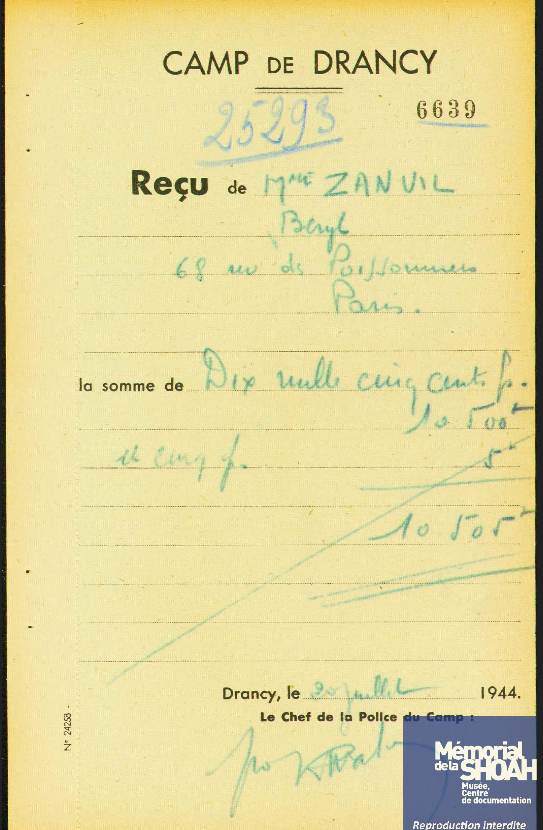 CAMP DE DRANCY
25293
6639
Reçu de Mme ZANVIL
Beryl
68 rue des Poissonniers
Paris.
la somme de Dix mille cinq cents f.
10 500
et cinq f. 5
10 505
Drancy, le 20 juillet 1944.
Le Chef de la Police du Camp :
N° 24258 -
Mémorial
de la SHOAH
Musée,
Centre
de documentation
Reproduction interdite